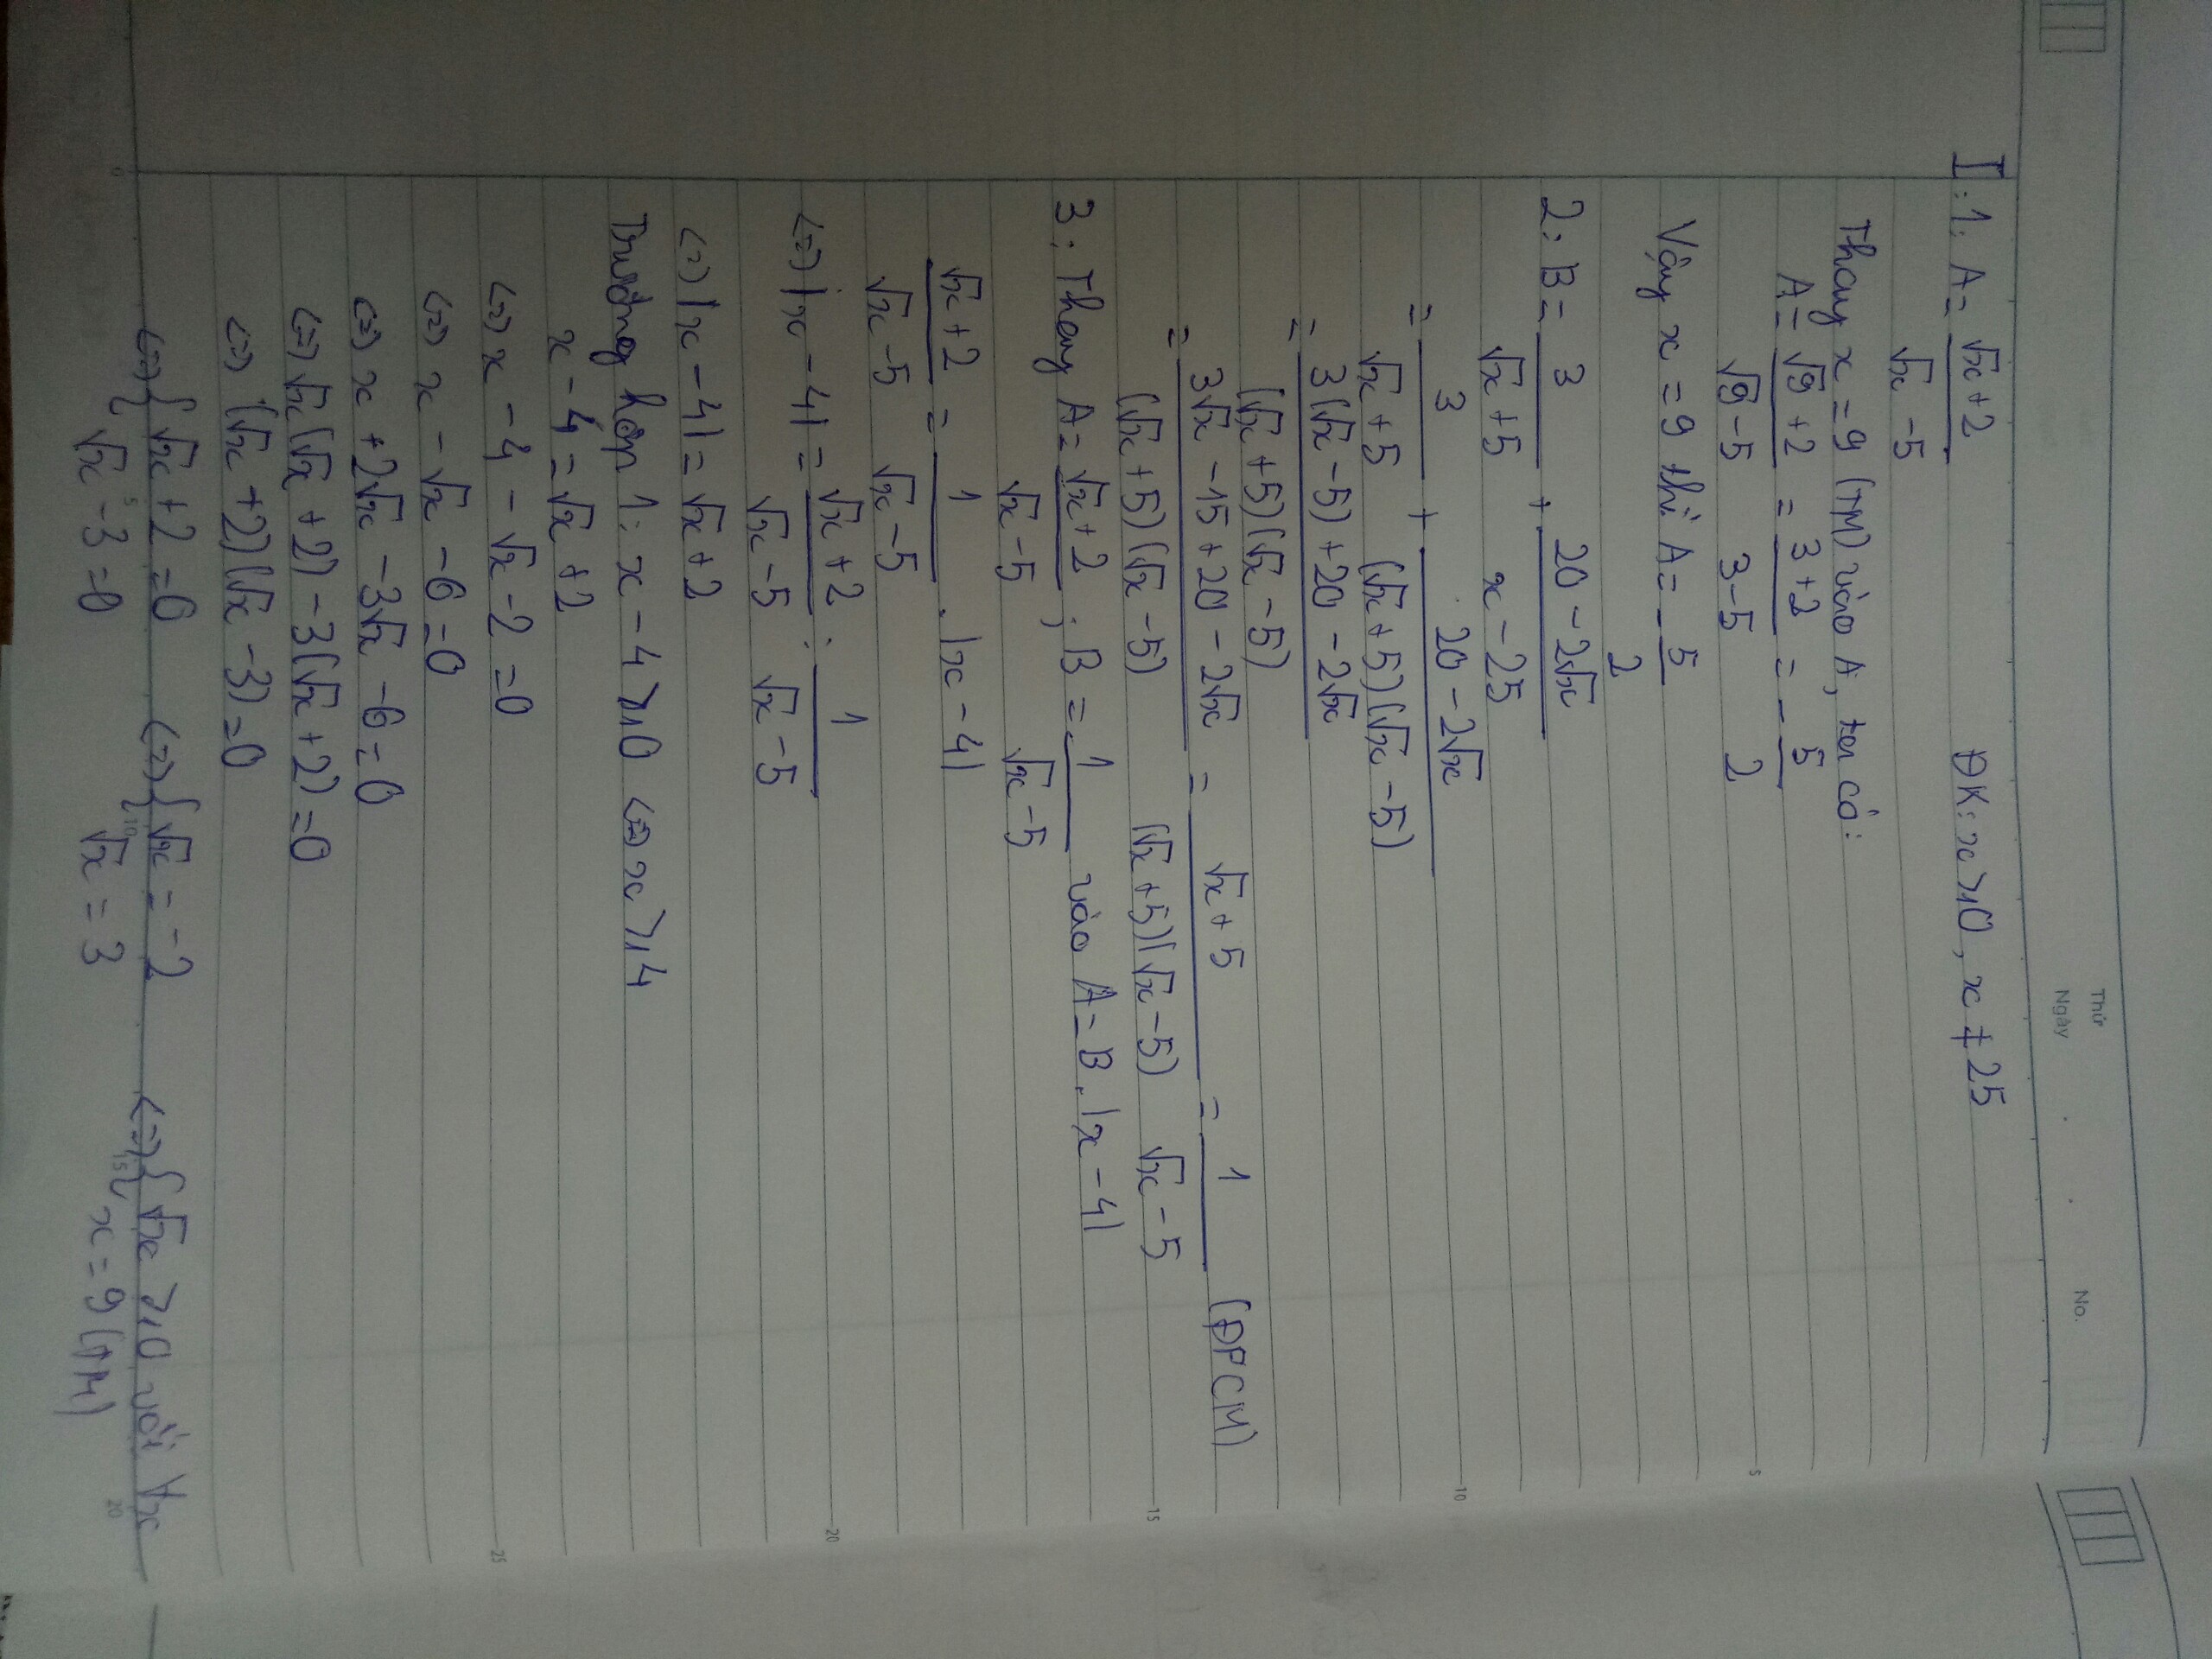 Thứ
Ngày
No.
I:1: A = (√x + 2)/(√x - 5) ĐK: x ≥ 0, x ≠ 25
Thay x = 9 (TM) vào A, ta có:
A = (√9 + 2)/(√9 - 5) = (3 + 2)/(3 - 5) = - 5/2
Vậy x = 9 thì A = - 5/2
2: B = 3/(√x + 5) + (20 - 2√x)/(x - 25)
= 3/(√x + 5) + (20 - 2√x)/((√x + 5)(√x - 5))
= (3(√x - 5) + 20 - 2√x)/((√x + 5)(√x - 5))
= (3√x - 15 + 20 - 2√x)/((√x + 5)(√x - 5)) = (√x + 5)/((√x + 5)(√x - 5)) = 1/(√x - 5) (ĐPCM)
3: Thay A = (√x + 2)/(√x - 5) ; B = 1/(√x - 5) vào A = B . |x - 4|
(√x + 2)/(√x - 5) = 1/(√x - 5) . |x - 4|
<=> |x - 4| = (√x + 2)/(√x - 5) : 1/(√x - 5)
<=> |x - 4| = √x + 2
Trường hợp 1: x - 4 ≥ 0 <=> x ≥ 4
x - 4 = √x + 2
<=> x - 4 - √x - 2 = 0
<=> x - √x - 6 = 0
<=> x + 2√x - 3√x - 6 = 0
<=> √x(√x + 2) - 3(√x + 2) = 0
<=> (√x + 2)(√x - 3) = 0
<=> { √x + 2 = 0 <=> { √x = -2 <=> { √x ≥ 0 với ∀x
√x - 3 = 0 √x = 3 x = 9 (TM)
5
10
15
20
25
0 5 10 15 20